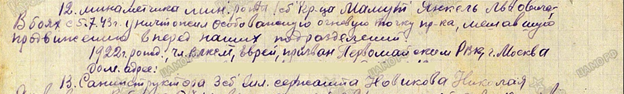 12. минометчика мин. роты 1сб гв. кр-ца Мамут Янкель Львович
В боях с 5.7.43 г. уничтожил особованную огневую точку пр-ка, мешавшую
продвижению вперед наших подразделений.
1922г. рожд., чл. ВЛКСМ, еврей, призван Первомайским РВК, г. Москва
Дом. адрес:
13. Санинструктора 3сб Гв. сержанта Новикова Николая